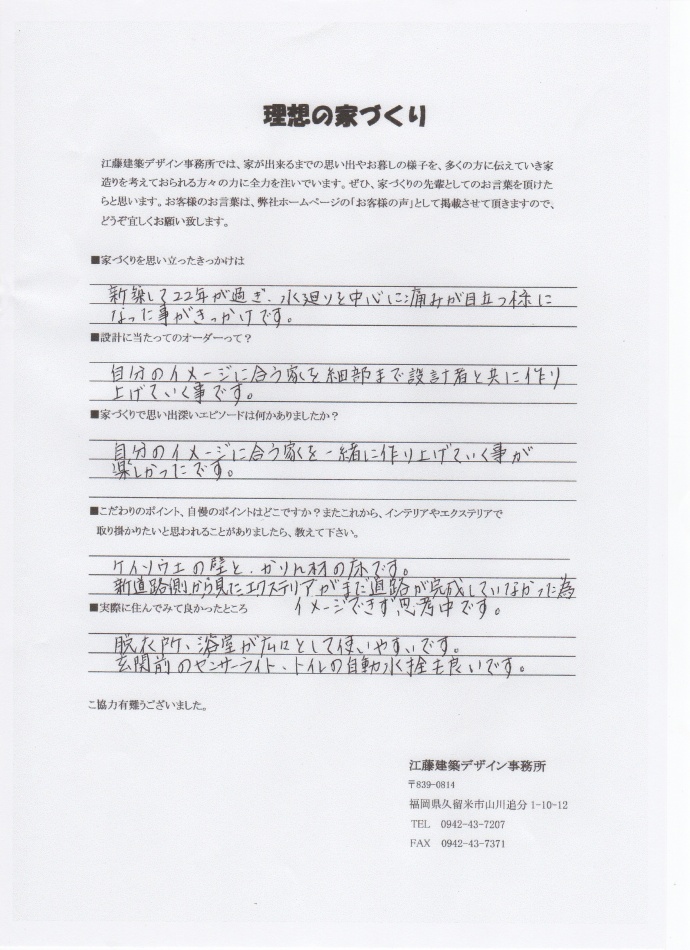 理想の家づくり
江藤建築デザイン事務所では、家が出来るまでの思い出やお暮しの様子を、多くの方に伝えていき家
造りを考えておられる方々の力に全力を注いでいます。ぜひ、家づくりの先輩としてのお言葉を頂けた
らと思います。お客様のお言葉は、弊社ホームページの「お客様の声」として掲載させて頂きますので、
どうぞ宜しくお願い致します。
■家づくりを思い立ったきっかけは
新築して22年が過ぎ、水廻りを中心に痛みが目立つ様に
なった事がきっかけです。
■設計に当たってのオーダーって？
自分のイメージに合う家を細部まで設計者と共に作り
上げていく事です。
■家づくりで思い出深いエピソードは何かありましたか？
自分のイメージに合う家を一緒に作り上げていく事が
楽しかったです。
■こだわりのポイント、自慢のポイントはどこですか？またこれから、インテリアやエクステリアで
取り掛かりたいと思われることがありましたら、教えて下さい。
ケイソウ土の壁と、かりん材の床です。
新道路側から見たエクステリアがまだ道路が完成していなかった為
イメージできず思考中です。
■実際に住んでみて良かったところ
脱衣所、浴室が広々として使いやすいです。
玄関前のセンサーライト、トイレの自動水栓も良いです。
ご協力有難うございました。
江藤建築デザイン事務所
〒839-0814
福岡県久留米市山川追分1-10-12
TEL 0942-43-7207
FAX 0942-43-7371